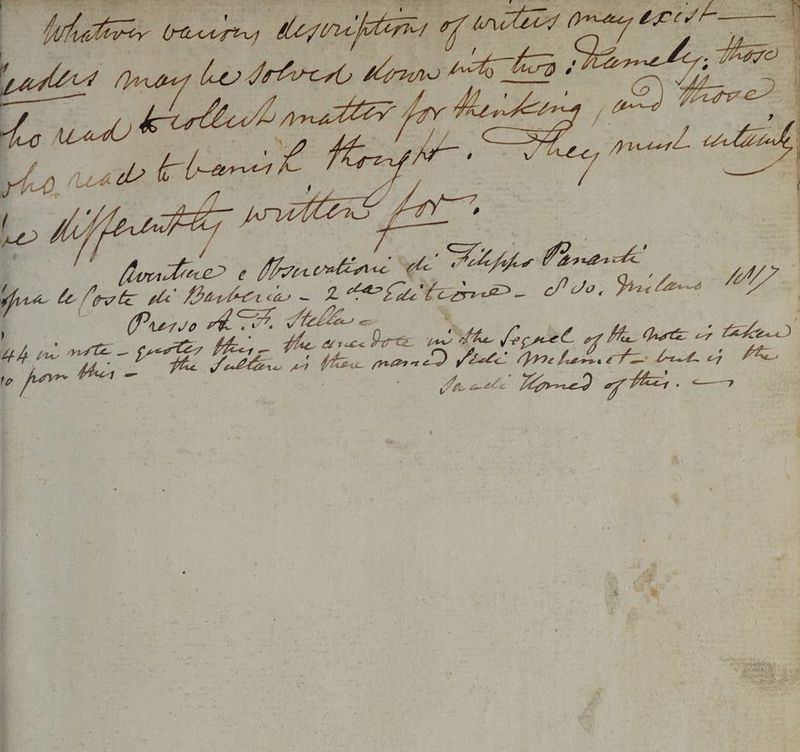 Whatever various descriptions of writers may exist —
eaders may be solved down into two: Namely: those
ho read to collect matter for thinking, and those
who read to banish thought. They must certainly
be differently written for.
Aventure e Observationi di Filippo Pananti
sopra le Coste di Barberia - 2da Editione - 8vo. Milano 1817
Presso A. F. Stella -
44 in note - quotes this - the anecdote in the Sequel of the note is taken
from this - the Sultan is then named Sidi Mehemet - but is the
of this. —